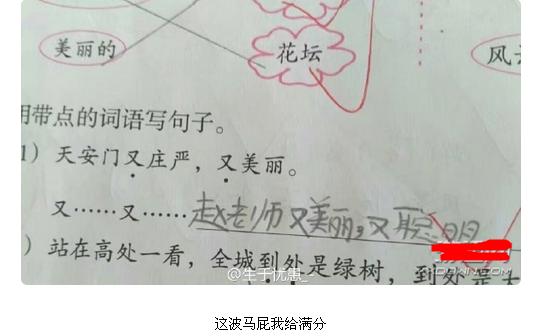 美丽的
花坛
风
用带点的词语写句子。
1) 天安门又庄严，又美丽。
又……又……赵老师又美丽，又聪明
) 站在高处一看，全城到处是绿树，到处是
@生于忧患_
这波马屁我给满分